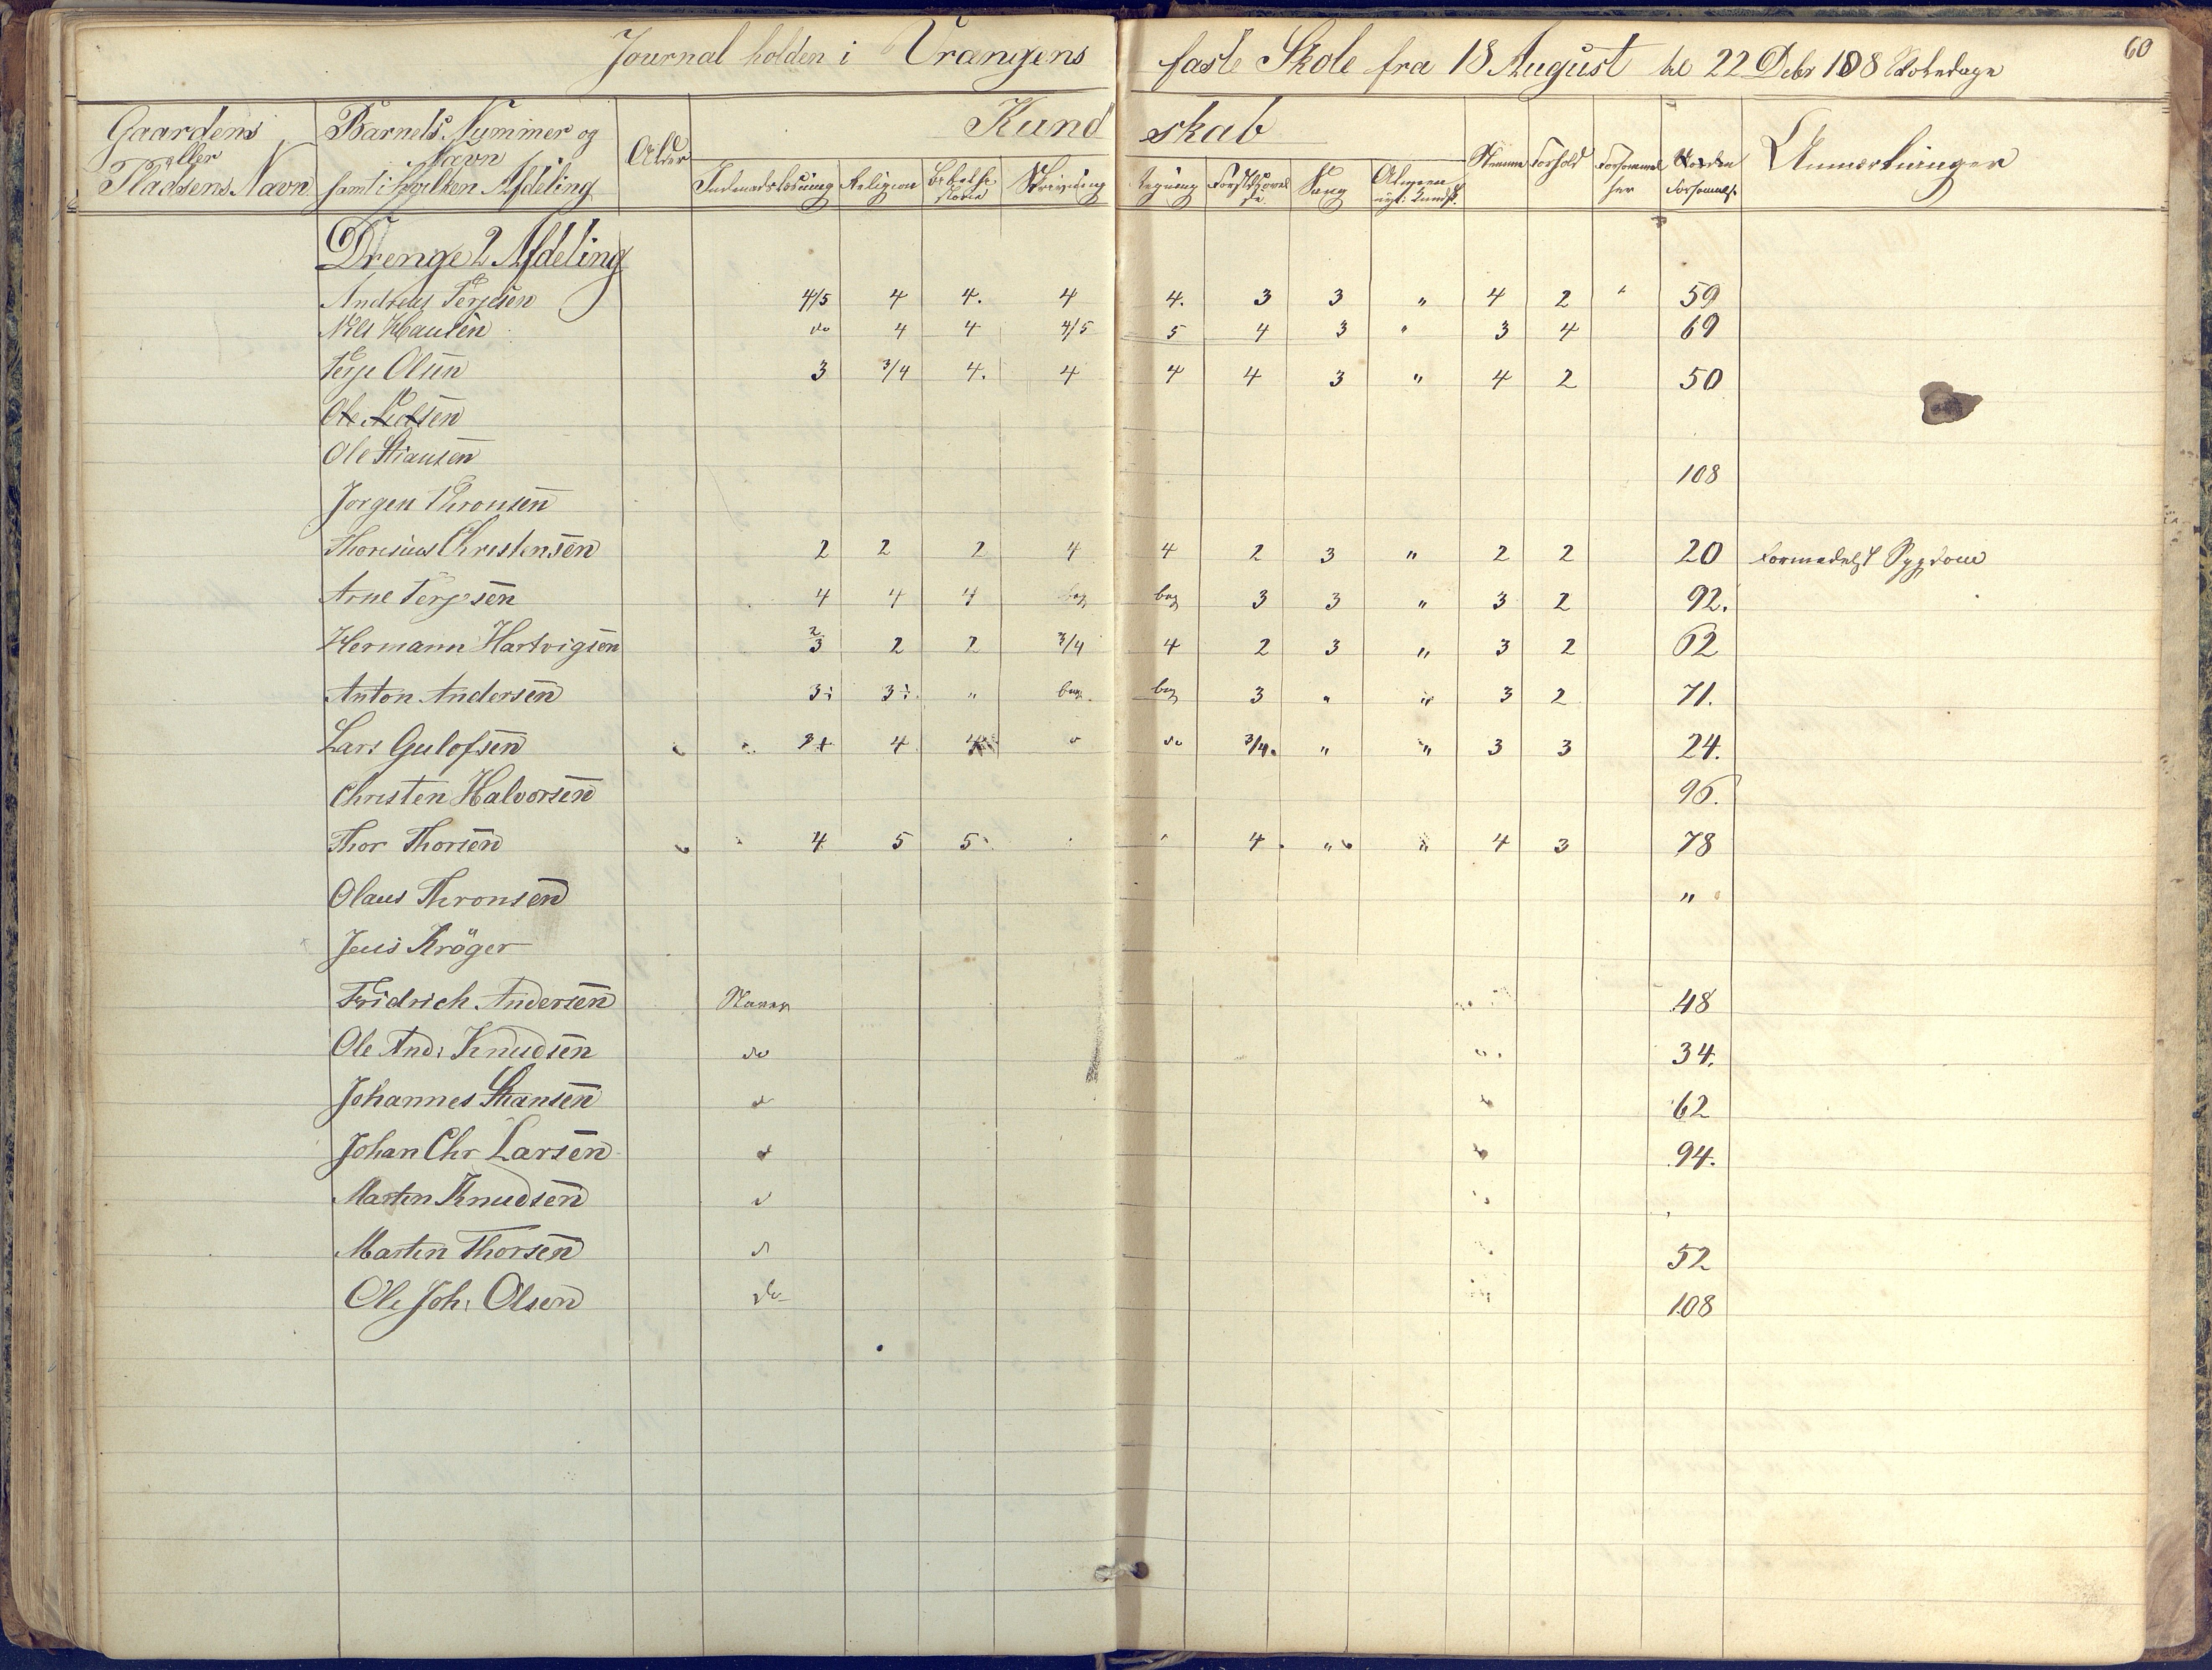 60
Journal holden i Vrangens faste Skole fra 18 August til 22 Debr 108 Skoledage
Gaardens eller Pladsens Navn
Barnets Nummer og Navn samt i hvilken Afdeling
Alder
Kundskab
Indenadslæsning Religion Bibelhistorie Skrivning Regning Sang Stemme Forhold Anmærkninger
Drenge 2 Afdeling
Andreas Terjesen 4/5 4 4. 4 4. 3 3 " 4 2 " 59
Nils Hansen do 4 4 4/5 5 4 3 " 3 4 69
Terje Olsen 3 3/4 4. 4 4 4 3 " 4 2 50
Ole Nielsen
Ole Stiansen 108
Jørgen Thronsen
Thorsius Christensen 2 2 2 4 4 2 3 " 2 2 20 formedelst Sygdom
Arne Terjesen 4 4 4 beg beg 3 3 " 3 2 92.
Hermann Hartvigsen 2/3 2 2 3/4 4 2 3 " 3 2 62
Anton Andersen 3÷ 3÷ " beg. beg 3 " " 3 2 71.
Lars Gulofsen 3+ 4 4 " do 3/4. " " 3 3 24.
Christen Halvorsen 96.
Thor Thorsen 4 5 5 " 4 " " 4 3 78
Olaus Thronsen "
Jens Kröger
Fridrich Andersen Staver 48
Ole And: Knudsen do 34.
Johannes Stiansen do 62
Johan Chr Larsen do 94.
Martin Knudsen do
Martin Thorsen do 52
Ole Joh: Olsen do 108